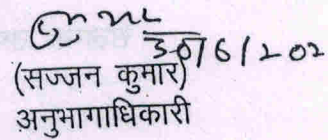 30/6/202
(सज्जन कुमार)
अनुभागाधिकारी